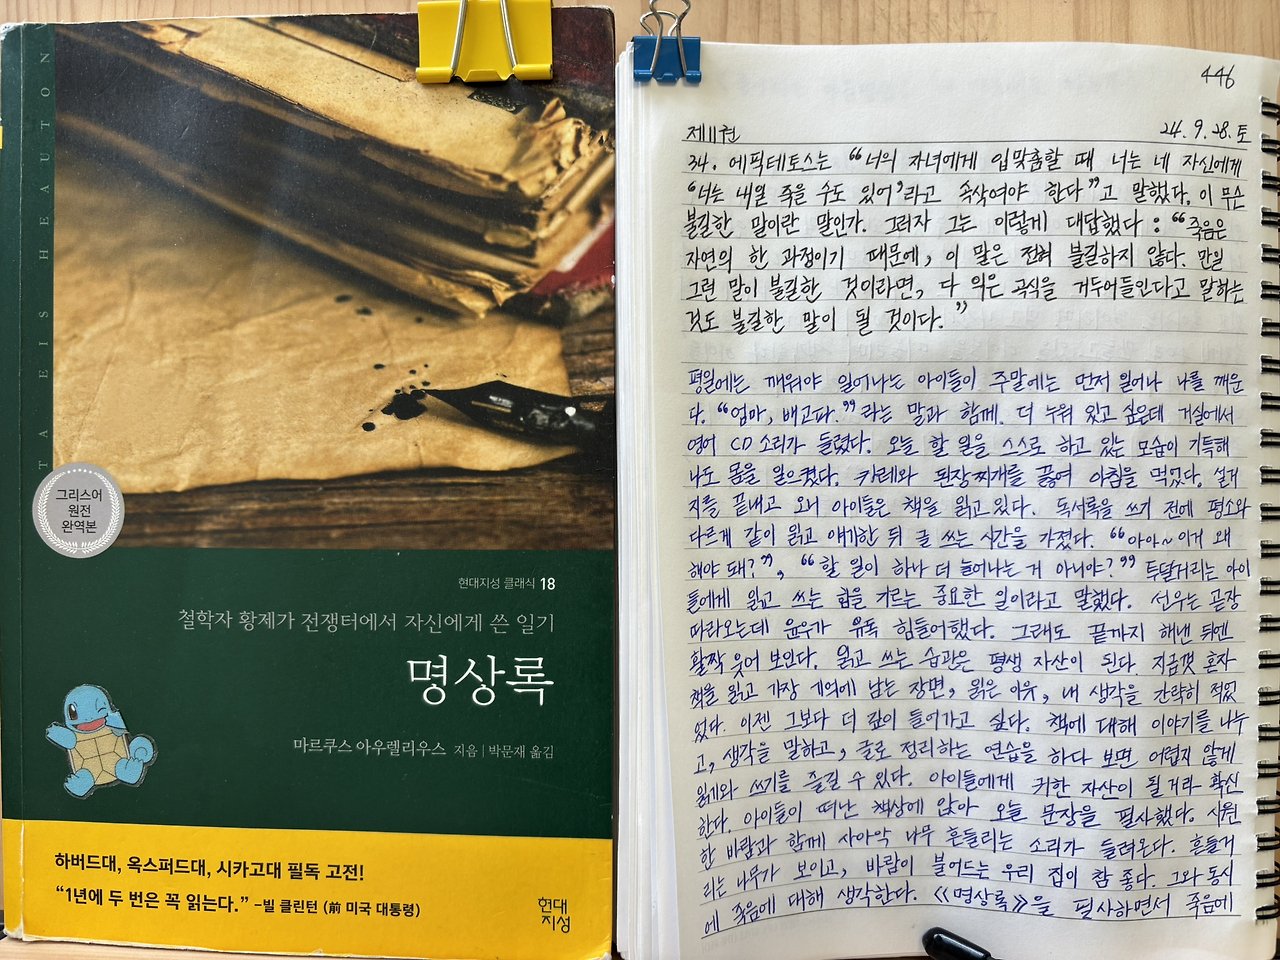 TA EIS HEAUTON
그리스어
원전
완역본
현대지성 클래식 18
철학자 황제가 전쟁터에서 자신에게 쓴 일기
명상록
마르쿠스 아우렐리우스 지음 | 박문재 옮김
하버드대, 옥스퍼드대, 시카고대 필독 고전!
“1년에 두 번은 꼭 읽는다.” –빌 클린턴 (前 미국 대통령)
현대
지성
446
제11권 24. 9. 28. 토
34. 에픽테토스는 “너의 자녀에게 입맞춤할 때 너는 네 자신에게
‘너는 내일 죽을 수도 있어’라고 속삭여야 한다”고 말했다. 이 무슨
불길한 말이란 말인가. 그러자 그는 이렇게 대답했다 : “죽음은
자연의 한 과정이기 때문에, 이 말은 전혀 불길하지 않다. 만일
그런 말이 불길한 것이라면, 다 익은 곡식을 거두어들인다고 말하는
것도 불길한 말이 될 것이다.”
평일에는 깨워야 일어나는 아이들이 주말에는 먼저 일어나 나를 깨운
다. “엄마, 배고파.”라는 말과 함께. 더 누워 있고 싶은데 거실에서
영어 CD 소리가 들렸다. 오늘 할 일을 스스로 하고 있는 모습이 기특해
나도 몸을 일으켰다. 카레와 된장찌개를 끓여 아침을 먹었다. 설거
지를 끝내고 오니 아이들은 책을 읽고 있다. 독서록을 쓰기 전에 평소와
다르게 같이 읽고 얘기한 뒤 글 쓰는 시간을 가졌다. “아아~ 이거 왜
해야 돼?”, “할 일이 하나 더 늘어나는 거 아니야?” 투덜거리는 아이
들에게 읽고 쓰는 힘을 기르는 중요한 일이라고 말했다. 선우는 곧장
따라오는데 윤우가 유독 힘들어했다. 그래도 끝까지 해낸 뒤엔
활짝 웃어 보인다. 읽고 쓰는 습관은 평생 자산이 된다. 지금껏 혼자
책을 읽고 가장 기억에 남는 장면, 읽은 이유, 내 생각을 간략히 적었
었다. 이젠 그보다 더 깊이 들어가고 싶다. 책에 대해 이야기를 나누
고, 생각을 말하고, 글로 정리하는 연습을 하다 보면 어렵지 않게
읽기와 쓰기를 즐길 수 있다. 아이들에게 귀한 자산이 될거라 확신
한다. 아이들이 떠난 책상에 앉아 오늘 문장을 필사했다. 시원
한 바람과 함께 사아악 나무 흔들리는 소리가 들려온다. 흔들거
리는 나무가 보이고, 바람이 불어드는 우리 집이 참 좋다. 그와 동시
에 죽음에 대해 생각한다. 《명상록》을 필사하면서 죽음에